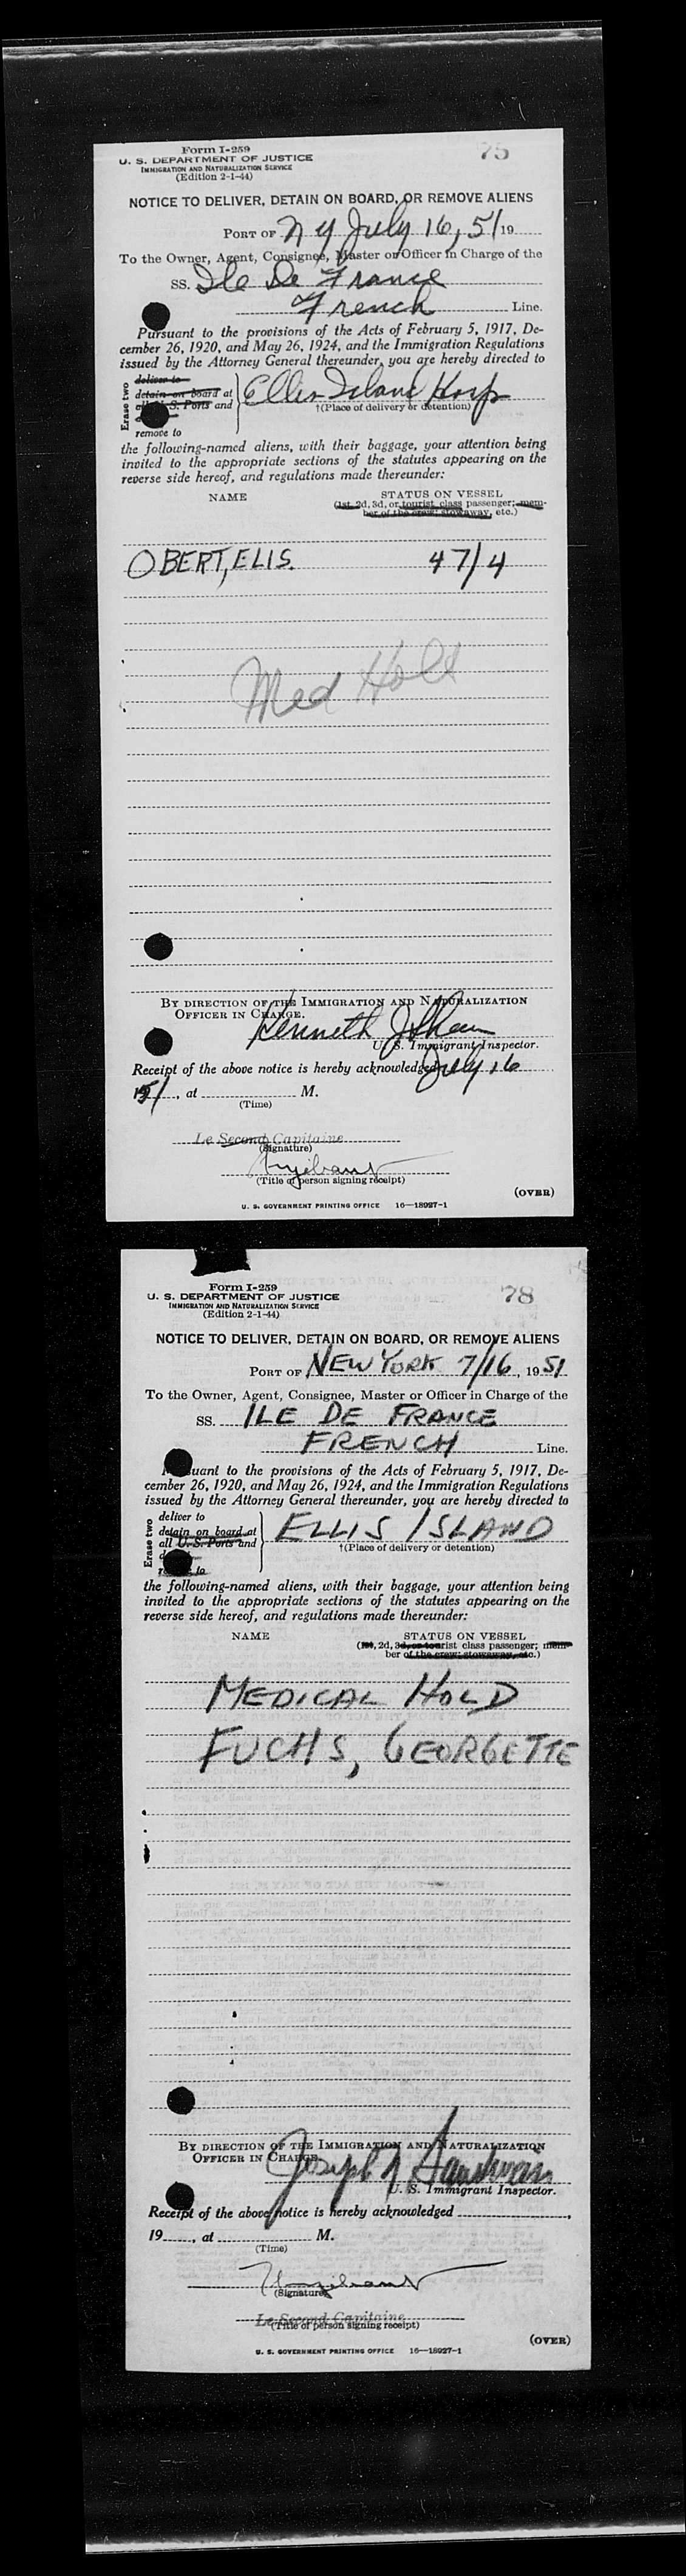 Form I-259
75
U. S. DEPARTMENT OF JUSTICE
IMMIGRATION AND NATURALIZATION SERVICE
(Edition 2-1-44)
NOTICE TO DELIVER, DETAIN ON BOARD, OR REMOVE ALIENS
PORT OF N Y July 16, 51 19
To the Owner, Agent, Consignee, Master or Officer in Charge of the
SS. Ile De France
French Line.
Pursuant to the provisions of the Acts of February 5, 1917, De-
cember 26, 1920, and May 26, 1924, and the Immigration Regulations
issued by the Attorney General thereunder, you are hereby directed to
Erase two
deliver to
detain on board at
all U. S. Ports and
remove to
Ellis Island Hosp
†(Place of delivery or detention)
the following-named aliens, with their baggage, your attention being
invited to the appropriate sections of the statutes appearing on the
reverse side hereof, and regulations made thereunder:
NAME
STATUS ON VESSEL
(1st, 2d, 3d, or tourist class passenger; mem-
ber of the crew; stowaway, etc.)
OBERT, ELIS. 47/4
Med Hold
BY DIRECTION OF THE IMMIGRATION AND NATURALIZATION
OFFICER IN CHARGE.
Kenneth J
U. S. Immigrant Inspector.
Receipt of the above notice is hereby acknowledged July 16
1951, at M.
(Time)
Le Second Capitaine
(Signature)
(Title of person signing receipt)
(OVER)
U. S. GOVERNMENT PRINTING OFFICE 16—18927-1
Form I-259
78
U. S. DEPARTMENT OF JUSTICE
IMMIGRATION AND NATURALIZATION SERVICE
(Edition 2-1-44)
NOTICE TO DELIVER, DETAIN ON BOARD, OR REMOVE ALIENS
PORT OF NEW YORK 7/16, 1951
To the Owner, Agent, Consignee, Master or Officer in Charge of the
SS. ILE DE FRANCE
FRENCH Line.
Pursuant to the provisions of the Acts of February 5, 1917, De-
cember 26, 1920, and May 26, 1924, and the Immigration Regulations
issued by the Attorney General thereunder, you are hereby directed to
Erase two
deliver to
detain on board at
all U. S. Ports and
to
ELLIS ISLAND
†(Place of delivery or detention)
the following-named aliens, with their baggage, your attention being
invited to the appropriate sections of the statutes appearing on the
reverse side hereof, and regulations made thereunder:
NAME
STATUS ON VESSEL
(1st, 2d, 3d, or tourist class passenger; mem-
ber of the crew; stowaway, etc.)
MEDICAL HOLD
FUCHS, GEORGETTE
BY DIRECTION OF THE IMMIGRATION AND NATURALIZATION
OFFICER IN CHARGE.
Joseph
U. S. Immigrant Inspector.
Receipt of the above notice is hereby acknowledged ,
19 , at M.
(Time)
(Signature)
Le Second Capitaine
(Title of person signing receipt)
(OVER)
U. S. GOVERNMENT PRINTING OFFICE 16—18927-1